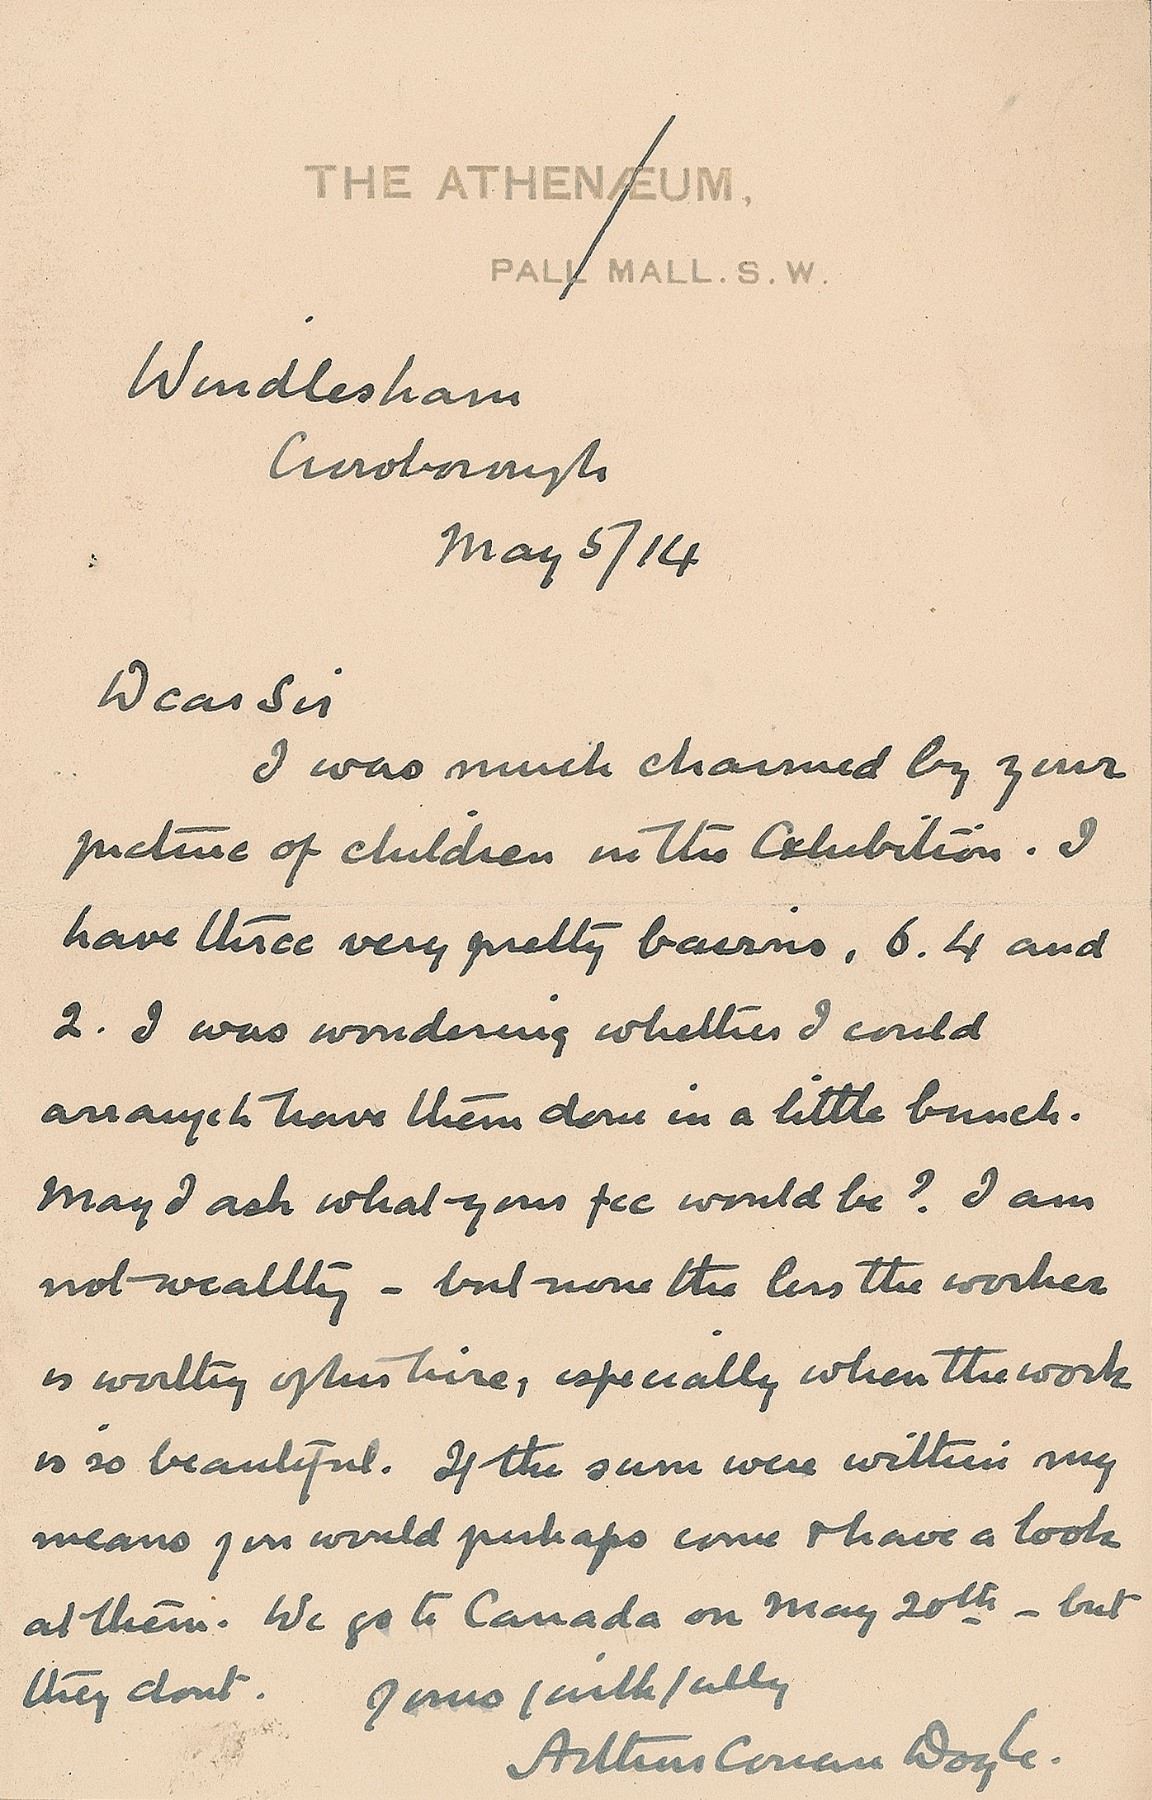 THE ATHENÆUM,
PALL MALL. S. W.
Windlesham
Crowborough
May 5/14
Dear Sir
I was much charmed by your
picture of children in the Exhibition. I
have three very pretty bairns, 6. 4 and
2. I was wondering whether I could
arrange to have them done in a little bunch.
May I ask what your fee would be? I am
not wealthy - but none the less the worker
is worthy of his hire, especially when the work
is so beautiful. If the sum were within my
means you would perhaps come & have a look
at them. We go to Canada on May 20th - but
they dont. Yours faithfully
Arthur Conan Doyle.